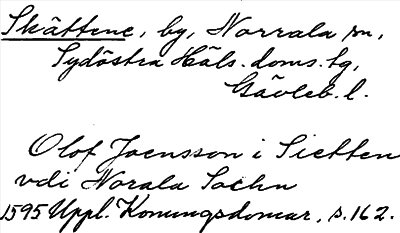 Skättene, by, Norrala sn,
Sydöstra Häls. doms. tg,
Gävleb. l.
Olof Joensson i Sietten
vdi Norala Sochn
1595 Uppl. Konungsdomar, s. 162.